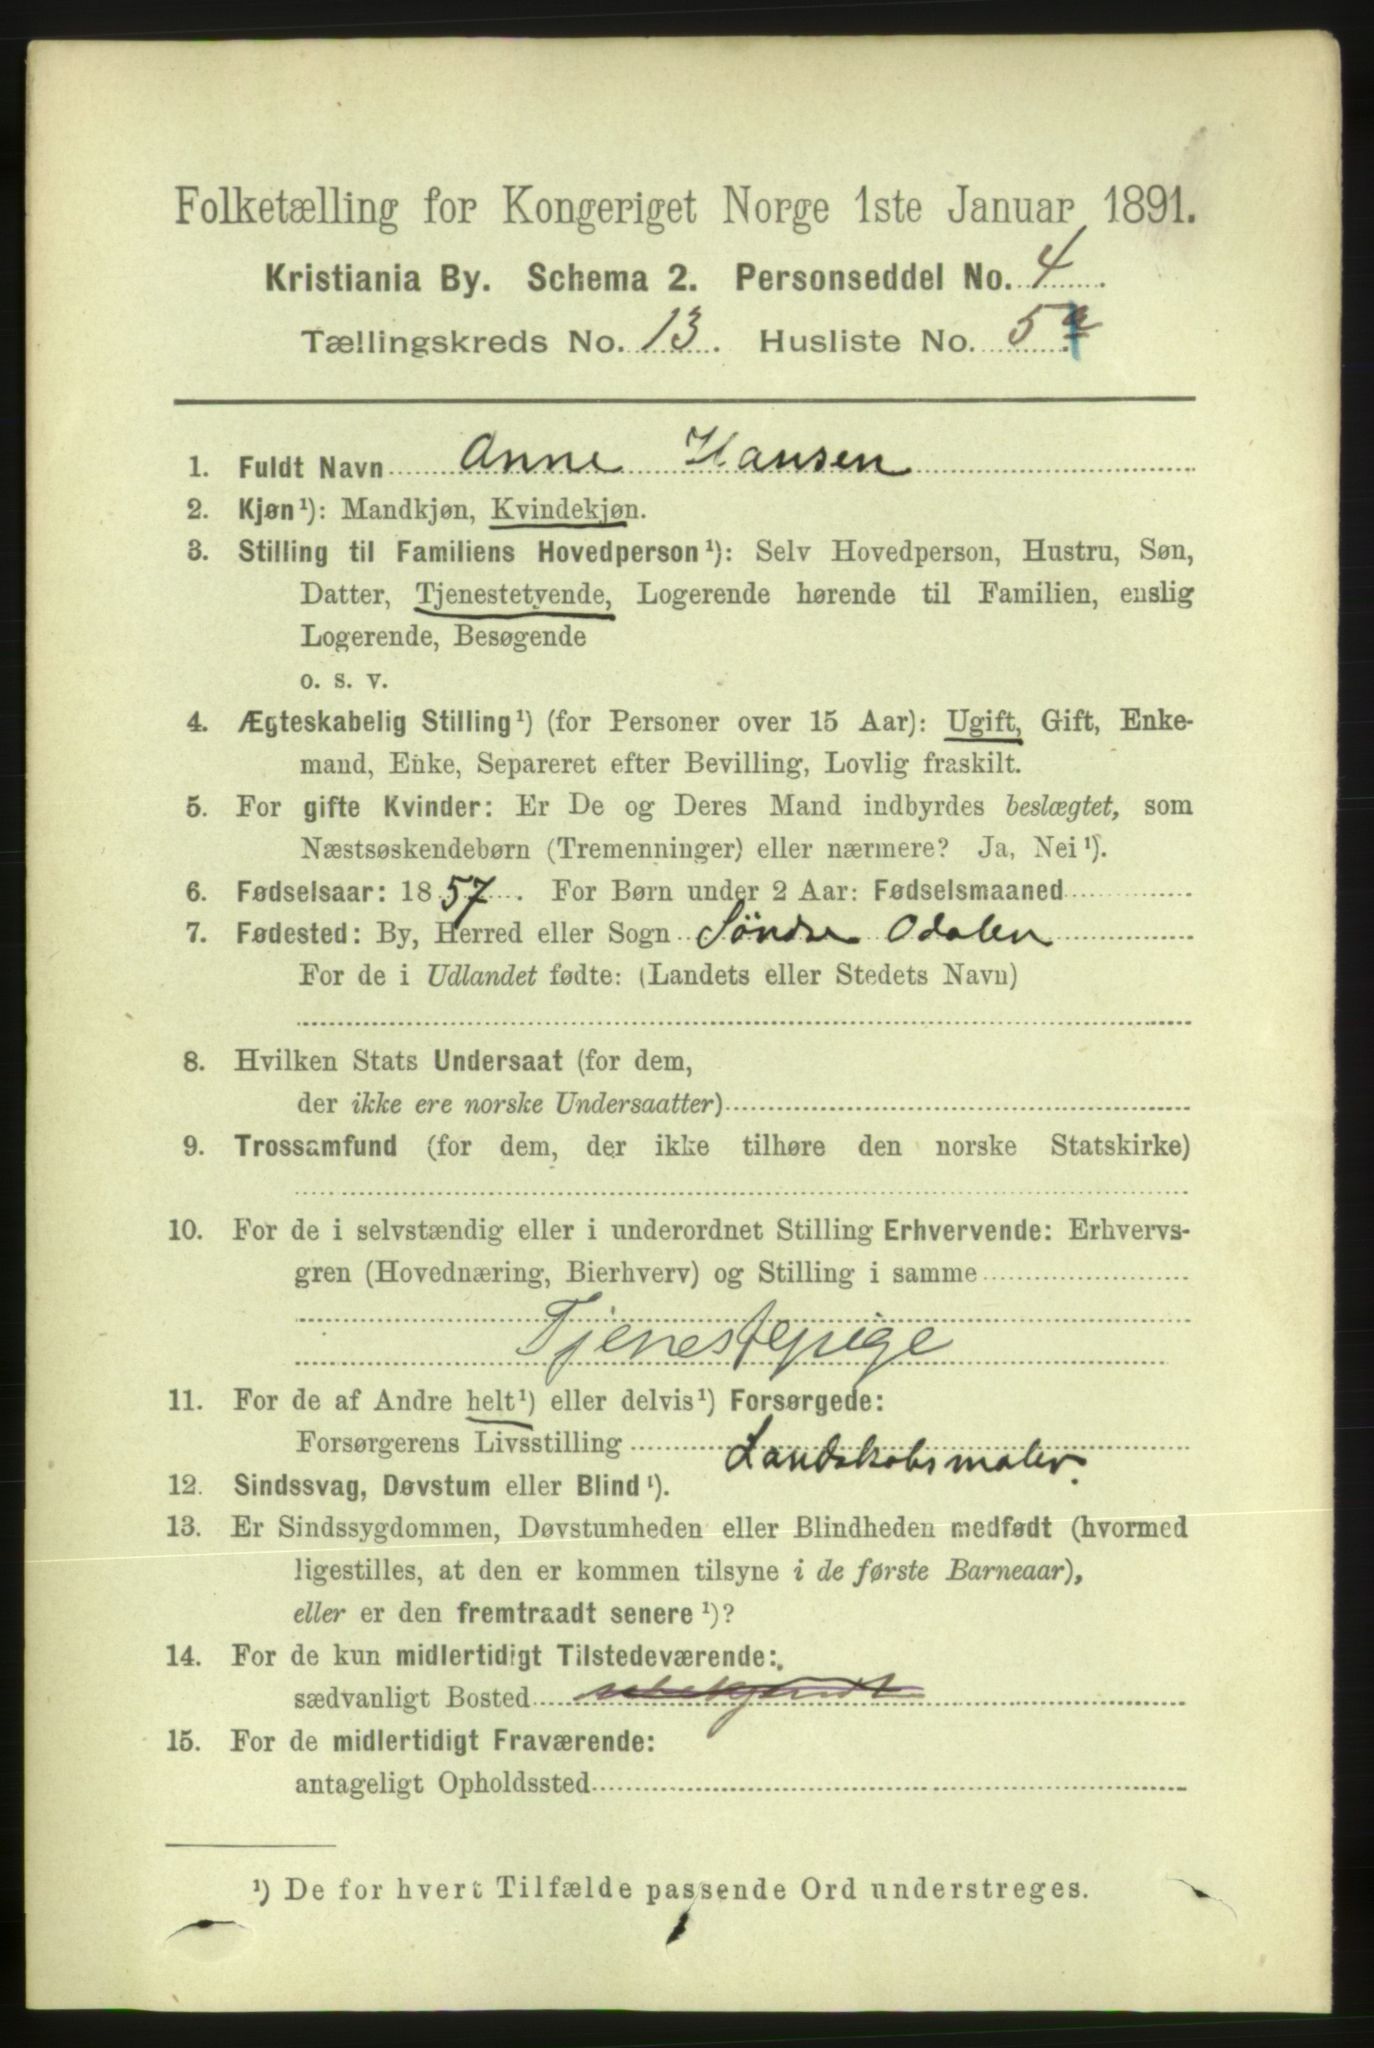 Folketælling for Kongeriget Norge 1ste Januar 1891.
Kristiania By. Schema 2. Personseddel No. 4
Tællingskreds No. 13. Husliste No. 5 a
1. Fuldt Navn Anne Hansen
2. Kjøn¹): Mandkjøn, Kvindekjøn.
3. Stilling til Familiens Hovedperson¹): Selv Hovedperson, Hustru, Søn,
Datter, Tjenestetyende, Logerende hørende til Familien, enslig
Logerende, Besøgende
o. s. v.
4. Ægteskabelig Stilling¹) (for Personer over 15 Aar): Ugift, Gift, Enke-
mand, Enke, Separeret efter Bevilling, Lovlig fraskilt.
5. For gifte Kvinder: Er De og Deres Mand indbyrdes beslægtet, som
Næstsøskendebørn (Tremenninger) eller nærmere? Ja, Nei¹).
6. Fødselsaar: 1857. For Børn under 2 Aar: Fødselsmaaned
7. Fødested: By, Herred eller Sogn Söndre Odalen
For de i Udlandet fødte: (Landets eller Stedets Navn)
8. Hvilken Stats Undersaat (for dem,
der ikke ere norske Undersaatter)
9. Trossamfund (for dem, der ikke tilhøre den norske Statskirke)
10. For de i selvstændig eller i underordnet Stilling Erhvervende: Erhvervs-
gren (Hovednæring, Bierhverv) og Stilling i samme
Tjenestepige
11. For de af Andre helt¹) eller delvis¹) Forsørgede:
Forsørgerens Livsstilling Landskabsmaler.
12. Sindssvag, Døvstum eller Blind¹).
13. Er Sindssygdommen, Døvstumheden eller Blindheden medfødt (hvormed
ligestilles, at den er kommen tilsyne i de første Barneaar),
eller er den fremtraadt senere¹)?
14. For de kun midlertidigt Tilstedeværende:
sædvanligt Bosted ubekjendt
15. For de midlertidigt Fraværende:
antageligt Opholdssted
¹) De for hvert Tilfælde passende Ord understreges.